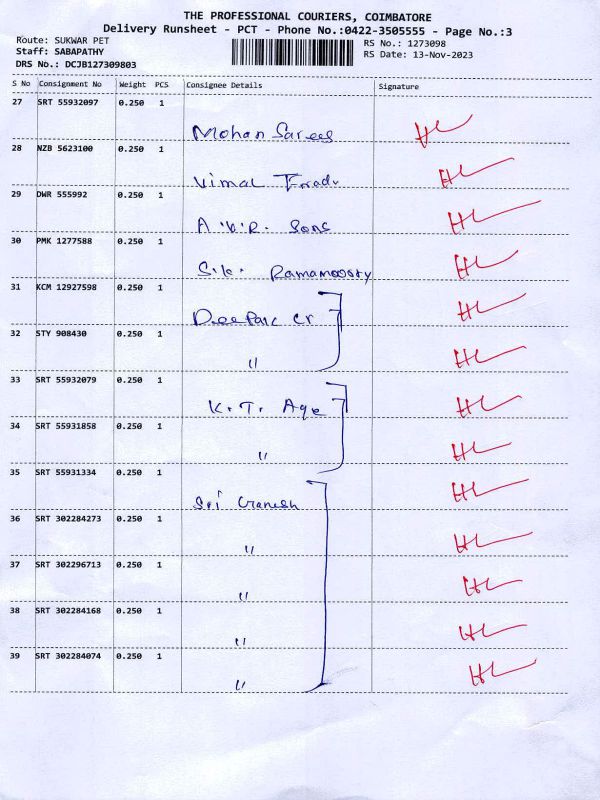 THE PROFESSIONAL COURIERS, COIMBATORE
Delivery Runsheet - PCT - Phone No.:0422-3505555 - Page No.:3
Route: SUKWAR PET
RS No.: 1273098
Staff: SABAPATHY
RS Date: 13-Nov-2023
DRS No.: DCJB127309803
S No Consignment No Weight PCS Consignee Details Signature
27 SRT 55932097 0.250 1
Mohan Sarees HL
28 NZB 5623100 0.250 1
Vimal HL
29 DWR 555992 0.250 1
A.V.R. Sons HL
30 PMK 1277588 0.250 1
S.K. Ramamoorty HL
31 KCM 12927598 0.250 1
Deepak Cr HL
32 STY 908430 0.250 1
" HL
33 SRT 55932079 0.250 1
K.T. Age HL
34 SRT 55931858 0.250 1
" HL
35 SRT 55931334 0.250 1
Sri Ganesh HL
36 SRT 302284273 0.250 1
" HL
37 SRT 302296713 0.250 1
" HL
38 SRT 302284168 0.250 1
" HL
39 SRT 302284074 0.250 1
" HL